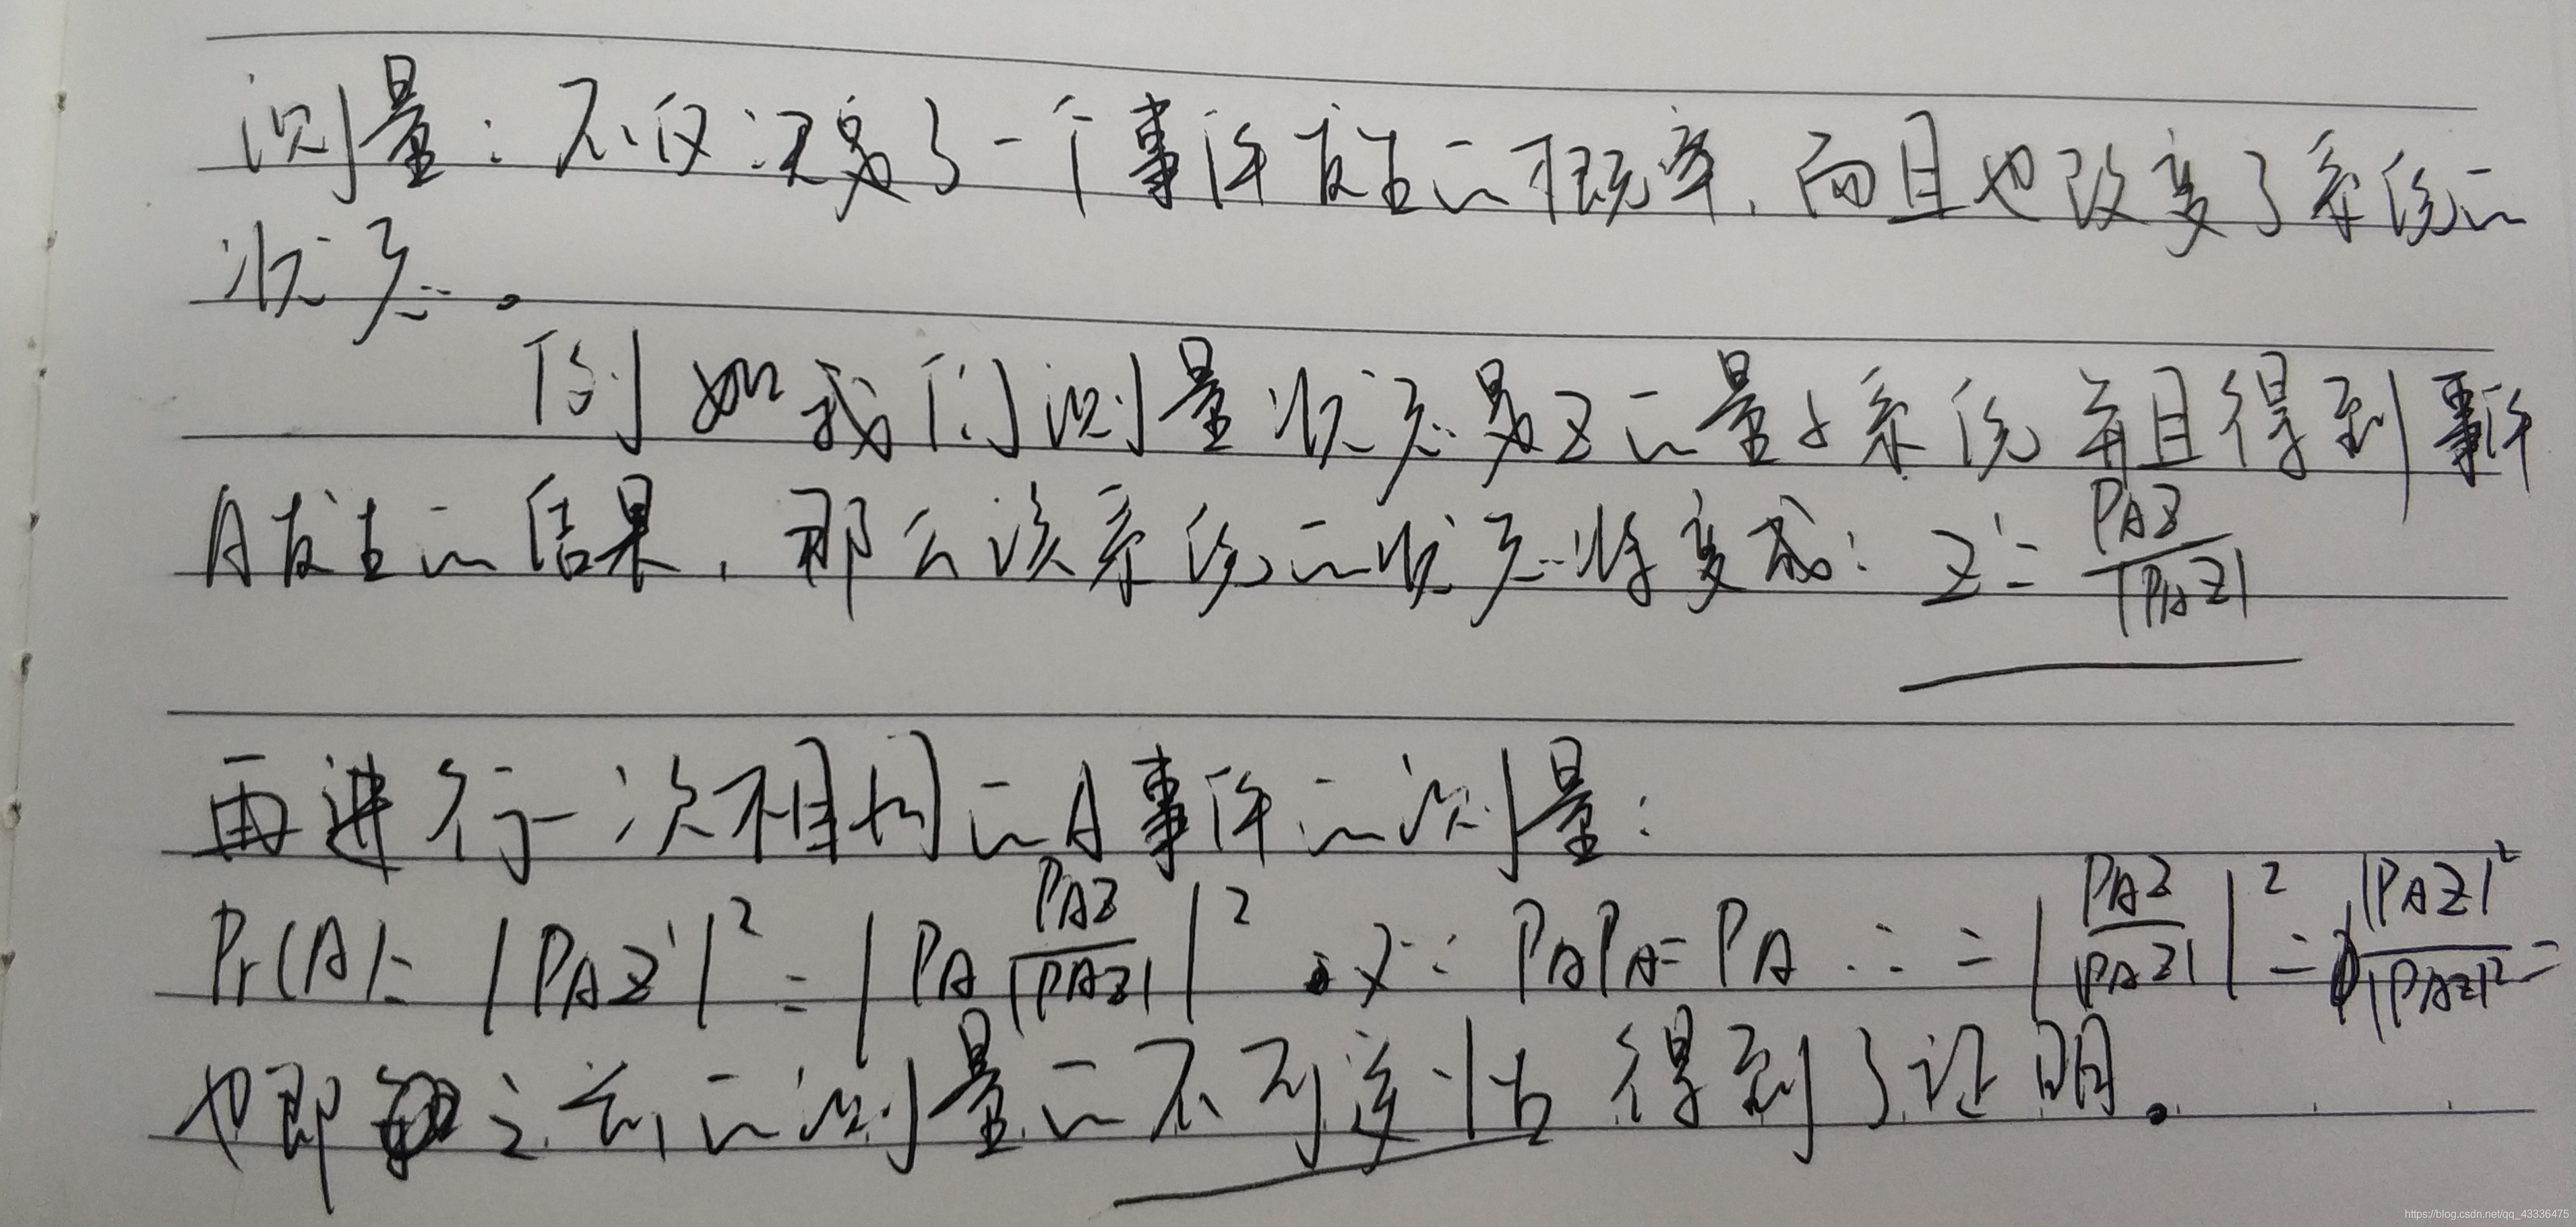 测量：不仅决定了一个事件发生的概率，而且也改变了系统的
状态。
例如我们测量状态为Z的量子系统并且得到事件
A发生的结果，那么该系统的状态将变成：Z'=PAZ/|PAZ|
再进行一次相同的A事件的测量：
Pr(A)=|PAZ'|²=|PA PAZ/|PAZ||² 又∵PAPA=PA ∴=|PAZ/|PAZ||²=|PAZ|²/|PAZ|²=
也即之前的测量的不可逆性得到了证明。
https://blog.csdn.net/qq_43336475